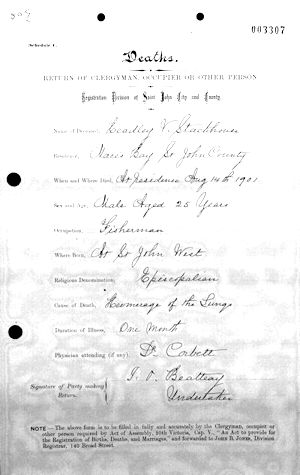 003307
Schedule C.
Deaths.
RETURN OF CLERGYMAN, OCCUPIER OR OTHER PERSON
Registration Division of Saint John City and County.
Name of Deceased, V. Stackhouse
Residence, Bay St John County
When and Where Died, At residence Aug 14th 1901
Sex and Age, Male Aged 25 Years
Occupation, Fisherman
Where Born, At St John West
Religious Denomination, Episcopalian
Cause of Death, Hemerage of the Lungs
Duration of Illness, One Month
Physician attending (if any), Dr Corbett
Signature of Party making Return. J. O. Beatteay
Undertaker
NOTE — The above form is to be filled in fully and accurately by the Clergyman, occupier or
other person required by Act of Assembly, 50th Victoria, Cap. V., "An Act to provide for
the Registration of Births, Deaths, and Marriages," and forwarded to JOHN B. JONES, Division
Registrar, 140 Broad Street.